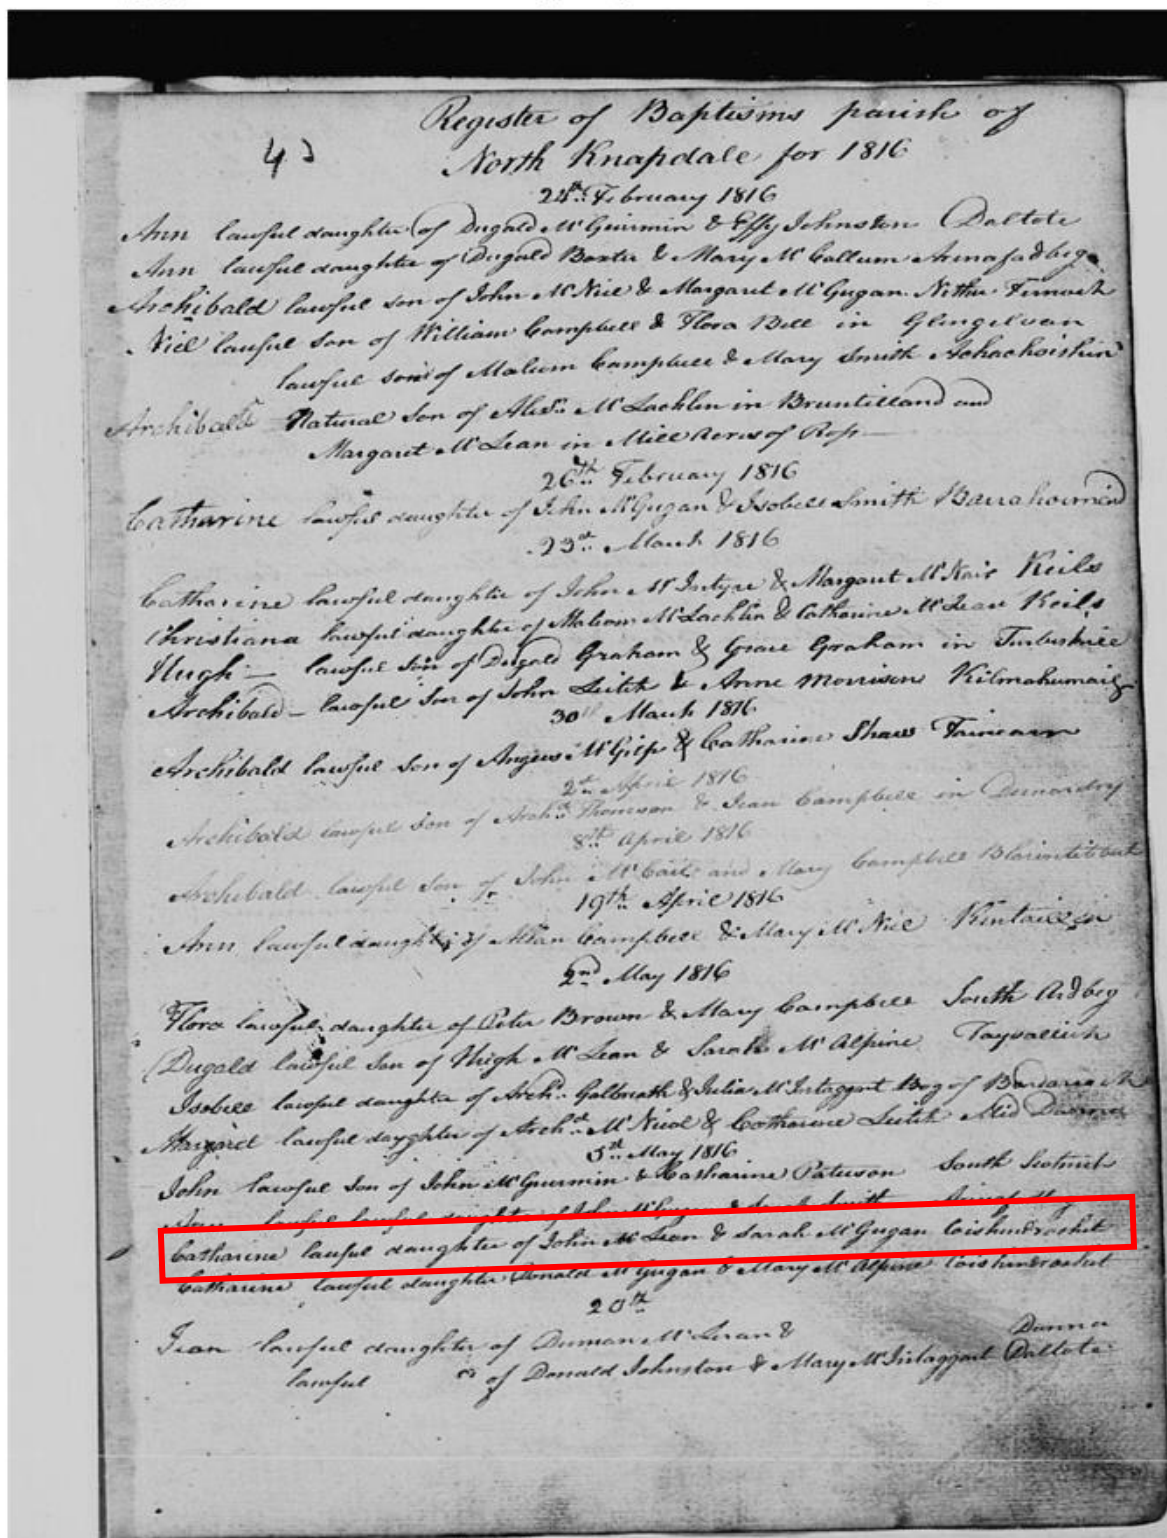 Register of Baptisms parish of
43
North Knapdale for 1816
24th February 1816
Ann lawful daughter of Dugald McGuirmin & Effy Johnston Daltote
Ann lawful daughter of Dugald Baxter & Mary McCallum Arinafadbeg
Archibald lawful son of John McNiel & Margaret McGugan Nither Fernoch
Niel lawful son of William Campbell & Flora Bell in Glengelvan
lawful son of Malcom Campbell & Mary Smith Achachoishin
Archibald Natural Son of Alexr McLachlin in Bruntilland and
Margaret McLean in Mill Acres of Ross
26th February 1816
Catharine lawful daughter of John McGugan & Isobell Smith
23rd March 1816
Catharine lawful daughter of John McIntyre & Margaret McNair Keils
Christiana lawful daughter of Malcom McLachlin & Catharine McLean Keils
Hugh – lawful Son of Dugald Graham & Grace Graham in
Archibald – lawful Son of John Leitch & Anne Morrison Kilmahumaig
30th March 1816
Archibald lawful Son of Angus McGilp & Catharine Shaw
2nd April 1816
Archibald lawful Son of Archd Thomson & Jean Campbell in Dunardry
8th April 1816
Archibald lawful Son of John McCail and Mary Campbell
19th April 1816
Ann lawful daughter of Allan Campbell & Mary McNiel
2nd May 1816
Flora lawful daughter of Peter Brown & Mary Campbell South Ardbeg
Dugald lawful Son of Hugh McLean & Sarah McAlpine Tayvallich
Isobell lawful daughter of Archd Galbreath & Julia McIntaggart Bog of
Margaret lawful daughter of Archd McNicol & Catharine Leitch Mid
5th May 1816
John lawful Son of John McGuirmin & Catharine Paterson South
lawful lawful daughter of John McGugan & Smith
Catharine lawful daughter of John McLean & Sarah McGugan Coishindrochit
Catharine lawful daughter Donald McGugan & Mary McAlpine Coishindrochit
20th
Jean lawful daughter of Duncan McLean & Danna
lawful of Donald Johnston & Mary McIntaggart Daltote